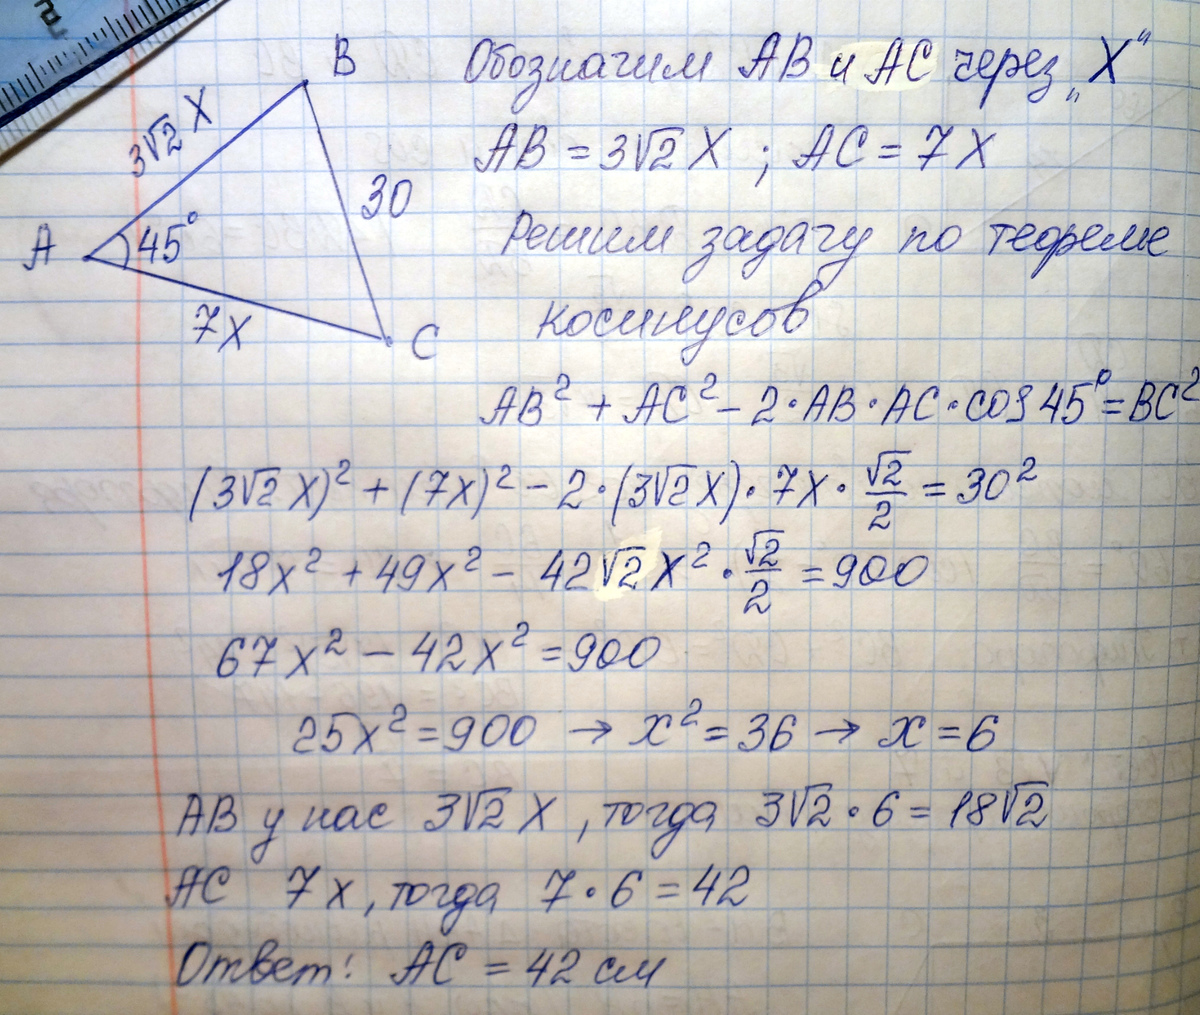 B
3√2 X
A
45°
30
7X
C
Обозначим AB и AC через „X"
AB = 3√2 X ; AC = 7X
Решим задачу по теореме
косинусов
AB² + AC² - 2 · AB · AC · cos 45° = BC²
(3√2 X)² + (7X)² - 2 · (3√2 X) · 7X · √2/2 = 30²
18x² + 49x² - 42√2 X² · √2/2 = 900
67x² - 42x² = 900
25x² = 900 → x² = 36 → x = 6
AB у нас 3√2 X , тогда 3√2 · 6 = 18√2
AC 7x, тогда 7 · 6 = 42
Ответ: AC = 42 см